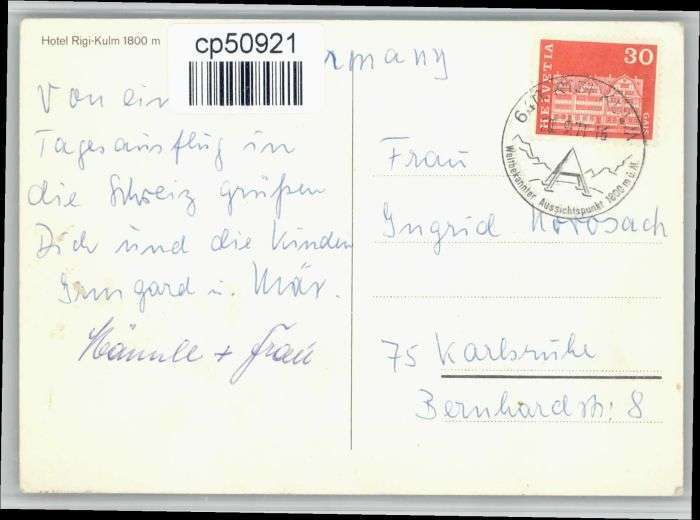 Hotel Rigi-Kulm 1800 m
cp50921
rmany
Von ein
Tagesausflug in
die Schweiz grüßen
Dich und die Kinder
Irmgard u. Max.
Männle + Frau
HELVETIA
30
GAIS
Weltbekannter Aussichtspunkt 1800 m ü. M.
Frau
Ingrid
75 Karlsruhe
Bernhardstr. 8